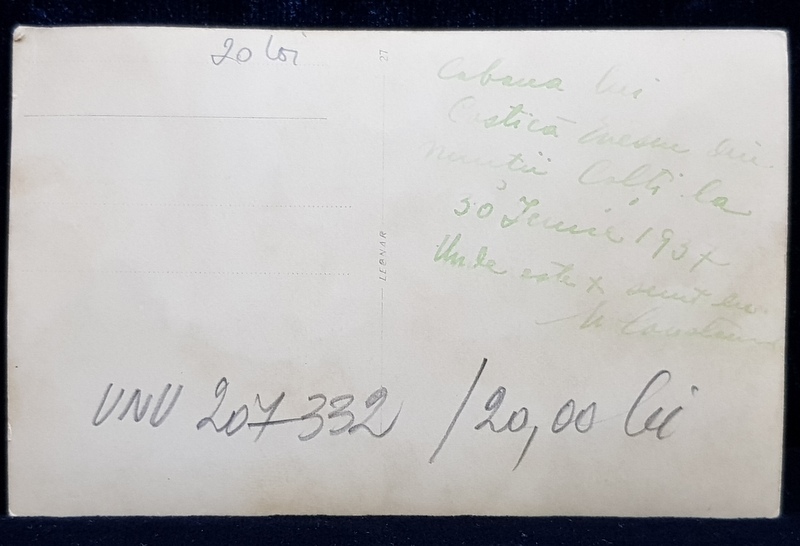 20 lei
27
LEONAR
Cabana lui
Costică din
munții Colți la
30 Iunie 1937
Unde este + sunt eu
UNU 207332 /20,00 lei